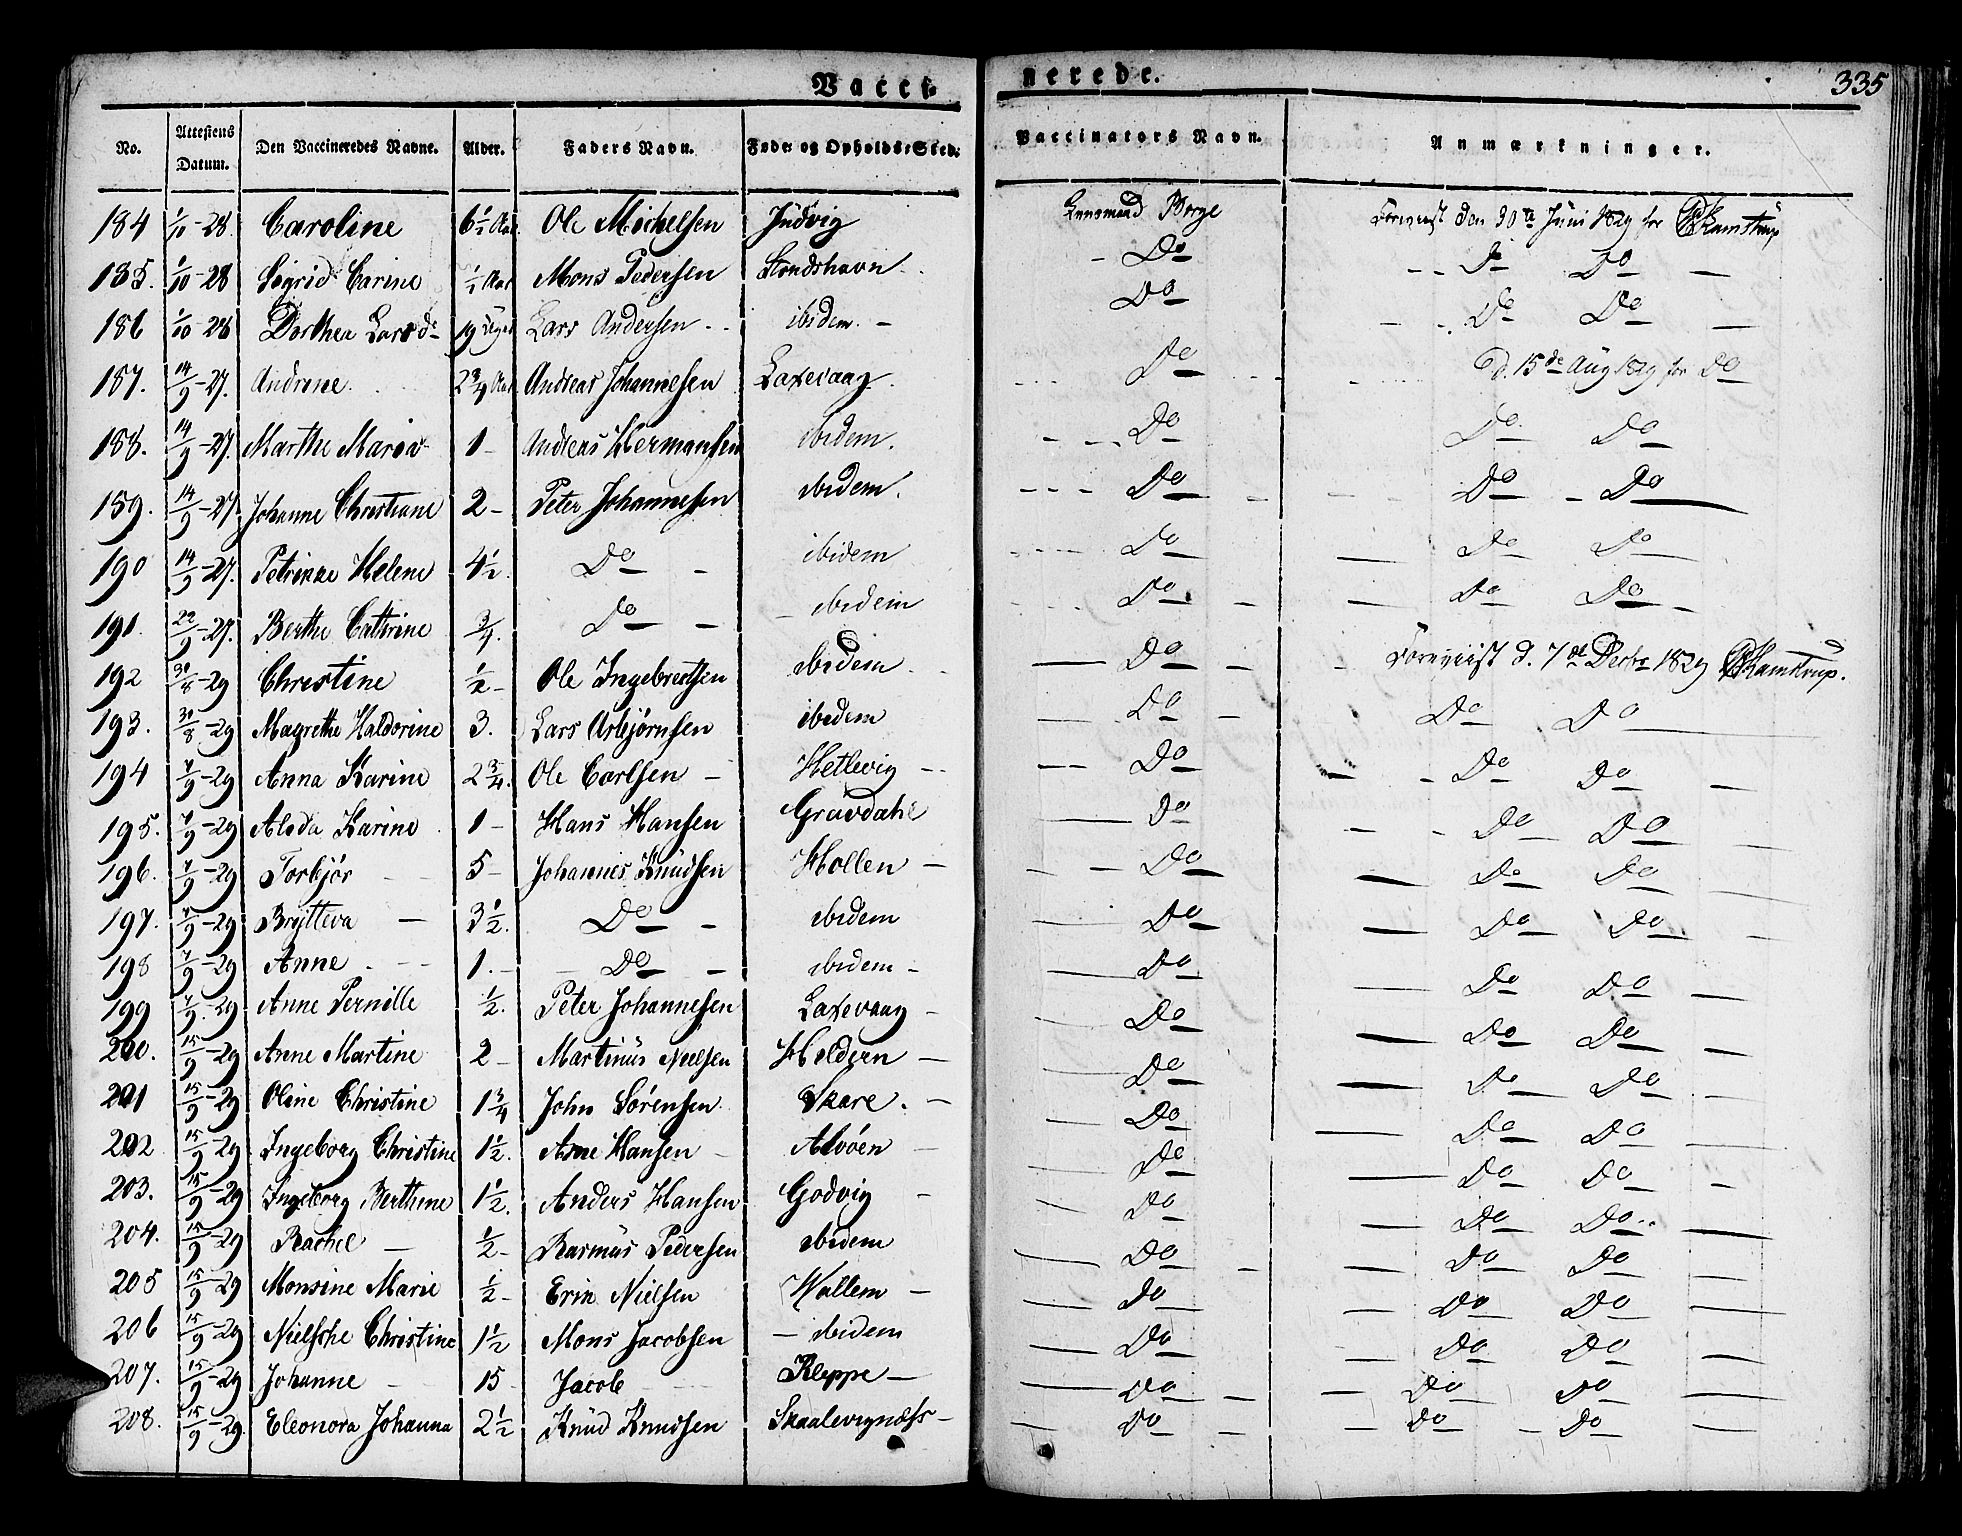 Vacci-
nerede.
335
No. Attestens Datum. Den Vaccineredes Navne. Alder. Faders Navn. Føde- og Opholds-Sted. Vaccinators Navn. Anmærkninger.
184 1/10-28. Caroline 6 1/2 Aar Ole Michelsen Judvig Lensmand Borge Foreviist den 30te Juni 1829 for Kamstrup
185. 1/10-28 Sigrid Carine 1/2 Aar Mons Pedersen Stondshavn Do Do Do
186 1/10-28 Dorthea Larsdr 19 Uger Lars Andersen ibidem Do Do Do
187. 14/9-27. Andrine 2 3/4 Aar Andreas Johannesen Laxevaag Do d. 15de Aug 1829 for Do
188. 14/9-27. Marthe Maria 1 Andreas Hermansen ibidem. Do Do Do
189. 14/9-27 Johanne Christiane 2 Peter Johannesen ibidem. Do Do Do
190 14/9-27. Petrikke Helene 4 1/2. Do ibidem Do Do Do
191. 22/9-27. Berthe Cathrine 3/4. Do ibidem Do Do Do
192 30/8-29 Christine 1/2 Ole Ingebretsen ibidem Do Foreviist d. 7de Decbr 1829 Kamstrup.
193. 30/8-29 Magrethe Haldorine 3. Lars Arbjørnsen ibidem Do Do Do
194 7/9-29 Anna Karine 2 3/4. Ole Carlsen Hetlevig Do Do Do
195. 7/9-29 Alida Karine 1 Hans Hansen Gravdahl Do Do Do
196. 7/9-29 Torbjør 5 Johannes Knudsen Hollen Do Do Do
197. 7/9-29 Brytteva 3 1/2. Do ibidem Do Do Do
198 7/9-29 Anne 1. Do ibidem Do Do Do
199 7/9-29 Anne Pernille 1/2. Peter Johannesen Laxevaag Do Do Do
200. 15/9-29 Anne Martine 2 Martinus Nielsen Holdern Do Do Do
201 15/9-29 Oline Christine 1 3/4 John Sørensen Skare. Do Do Do
202 15/9-29 Ingeborg Christine 1 1/2. Arne Hansen Alvøen Do Do Do
203. 15/9-29 Ingeborg Berthine 1 1/2. Anders Hansen Godvig Do Do Do
204. 15/9-29 Rachel 1/2 Rasmus Pedersen ibidem Do Do Do
205 15/9-29 Monsine Marie 1/2 Erik Nielsen Wallem Do Do Do
206 15/9-29 Nielsche Christine 1 1/2 Mons Jacobsen ibidem Do Do Do
207. 15/9-29 Johanne 15 Jacob Kleppe Do Do Do
208. 15/9-29. Eleonora Johanna 2 1/2 Knud Knudsen Skaalevignæss Do Do Do